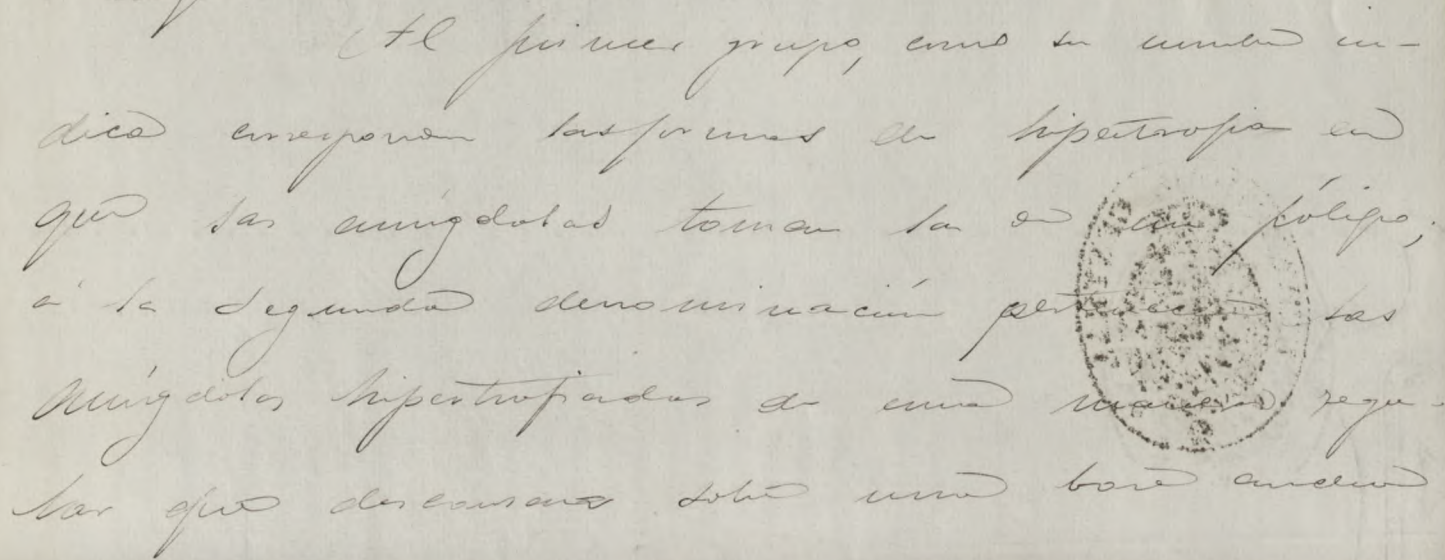 Al primer grupo, como su nombre in-
dica corresponden las formas de hipertrofia en
que las amígdalas toman la de un pólipo;
á la segunda denominación pertenecen las
amígdalas hipertrofiadas de una manera regu-
lar que descansan sobre una base ancha